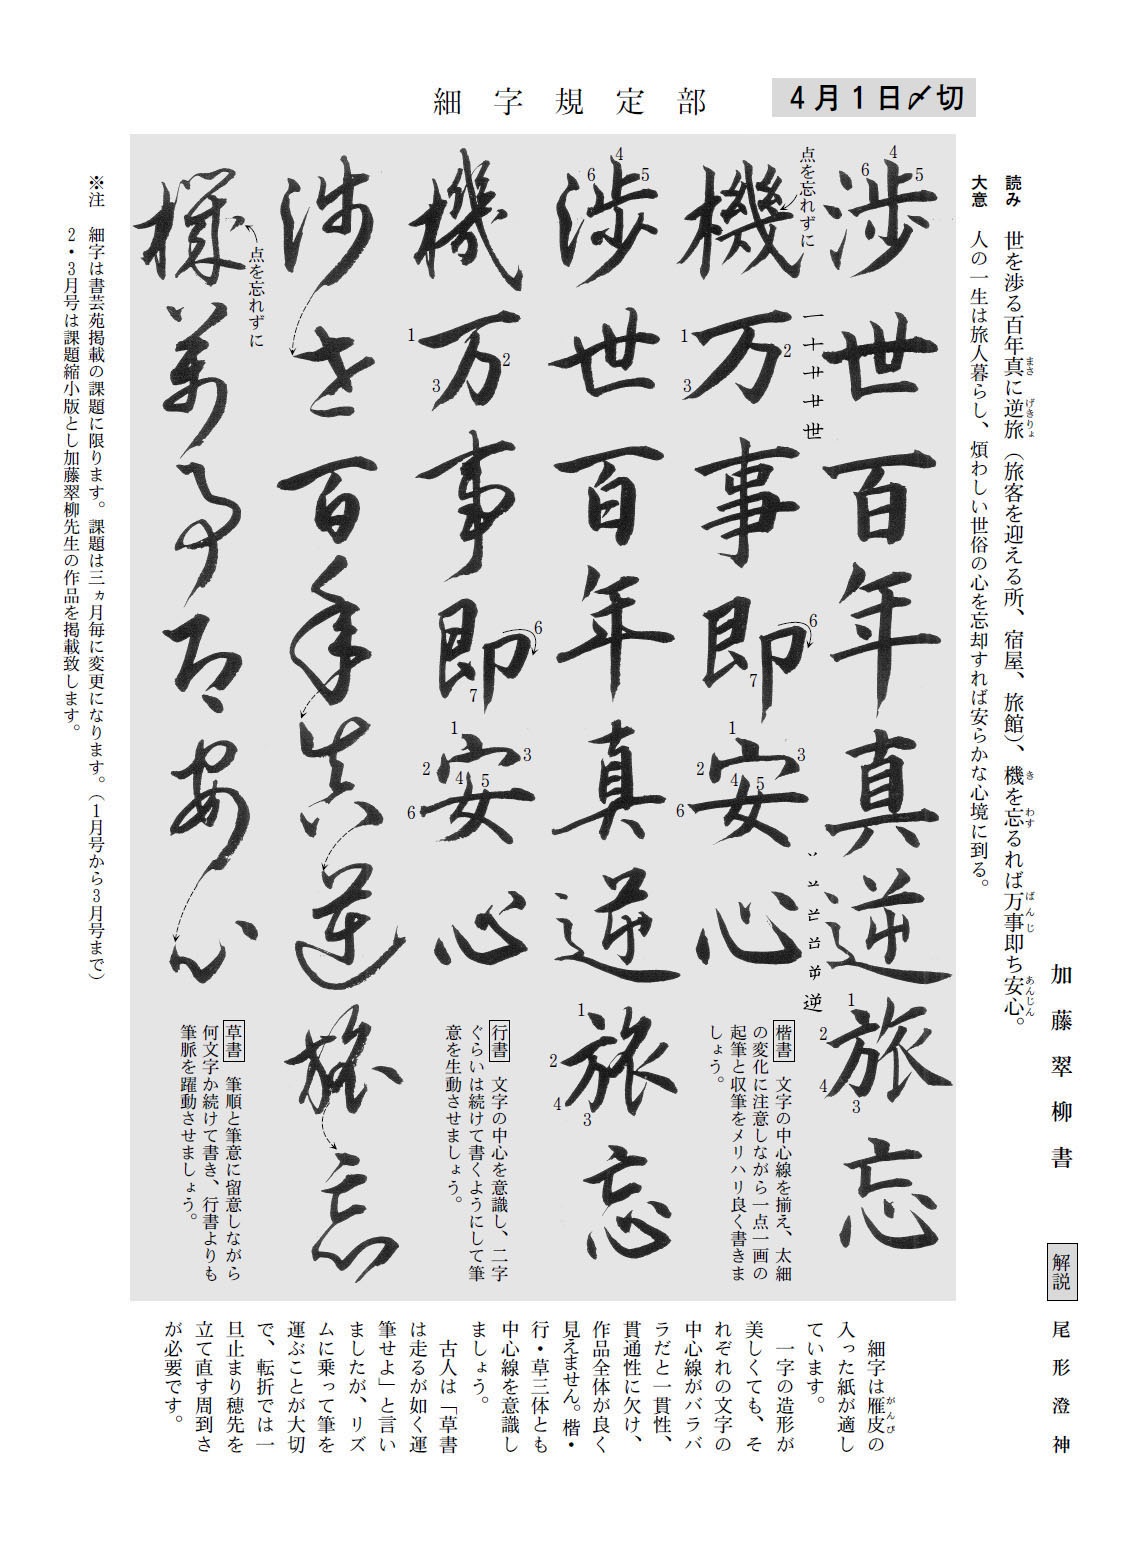 4月1日〆切
細字規定部
読み　世を渉る百年真に逆旅（旅客を迎える所、宿屋、旅館）、機を忘るれば万事即ち安心。
まさ
げきりょ
き
わす
ばんじ
あんじん
大意　人の一生は旅人暮らし、煩わしい世俗の心を忘却すれば安らかな心境に到る。
加藤翠柳書
解説　尾形澄神
渉世百年真逆旅忘
4
5
6
1
2
4
3
一十廿廿世
逆
点を忘れずに
機万事即安心
1
2
3
6
7
1
2
3
4
5
6
楷書　文字の中心線を揃え、太細
の変化に注意しながら一点一画の
起筆と収筆をメリハリ良く書きま
しょう。
渉世百年真逆旅忘
4
5
6
1
2
4
3
機万事即安心
1
2
3
6
7
1
2
3
4
5
6
行書　文字の中心を意識し、二字
ぐらいは続けて書くようにして筆
意を生動させましょう。
渉世百年真逆旅忘
点を忘れずに
機萬事即安心
草書　筆順と筆意に留意しながら
何文字か続けて書き、行書よりも
筆脈を躍動させましょう。
※注　細字は書芸苑掲載の課題に限ります。課題は三ヵ月毎に変更になります。（1月号から3月号まで）
2・3月号は課題縮小版とし加藤翠柳先生の作品を掲載致します。
細字は雁皮の
がんぴ
入った紙が適し
ています。
一字の造形が
美しくても、そ
れぞれの文字の
中心線がバラバ
ラだと一貫性、
貫通性に欠け、
作品全体が良く
見えません。楷・
行・草三体とも
中心線を意識し
ましょう。
古人は「草書
は走るが如く運
筆せよ」と言い
ましたが、リズ
ムに乗って筆を
運ぶことが大切
で、転折では一
旦止まり穂先を
立て直す周到さ
が必要です。